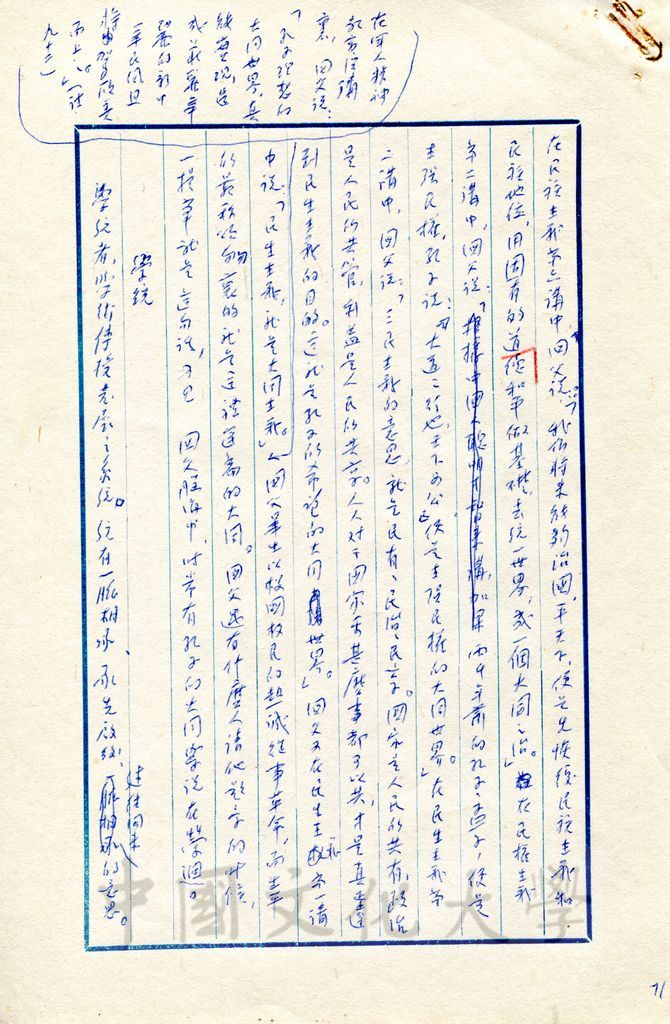 在民族主義第六講中，國父說：「我們將來能夠治國、平天下，便先要恢復民族主義和
民族地位，用固有的道德和平做基礎，去統一世界，成一個大同之治。」在民權主義
第一講中，國父說：「根據中國人聰明才智來講，如果兩千年前的孔子、孟子，便是
主張民權，孔子說：『大道之行也，天下為公』便是主張民權的大同世界。」在民生主義第
二講中，國父說：「三民主義的意思，就是民有、民治、民享。國家是人民的共有，政治
是人民的共管，利益是人民的共享。人人對于國家不甚麼事都可以共，才是真正達
到民生主義的目的。這就是孔子的希望的大同世界。」國父又在民生主義第一講
中說：「民生主義，就是大同主義。」國父畢生以救國救民的赤誠從事革命，而生平
的最稱崇的就是禮運篇的大同。國父還有什麼人請他題字的時候，
一提筆就是這句話，可見 國父腦海中，時常有孔子的大同學說在縈迴。
學統
學統者，學術傳授老承之系統。統有一脈相承、承先啟後、繼往開來的意思。
在軍人精神
教育演講
裏，國父說：
「孔子理想的
大同世界，真
能實現，造
成莊嚴華
麗的新中
華民國，且
將駕歐美
而上之。」（註
九十三）
中國文化大學
71